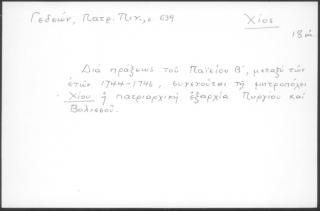 Γεδεών, Πατρ. Πιν., σ. 639
Χίος
18 αι.
Διά πράξεως τοῦ Παϊσίου Β΄, μεταξύ τῶν
ἐτῶν 1744-1746, ἑνοῦται τῇ μητροπόλει
Χίου ἡ πατριαρχική ἐξαρχία Πυργίου καί
Βολισσοῦ.